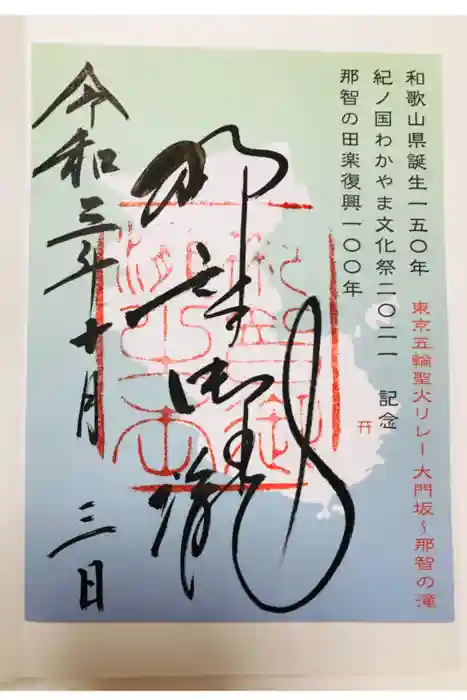 和歌山県誕生一五〇年
東京五輪聖火リレー 大門坂～那智の滝
紀ノ国わかやま文化祭二〇二一 記念
那智の田楽復興一〇〇年
那智御瀧
令和三年十月 三日